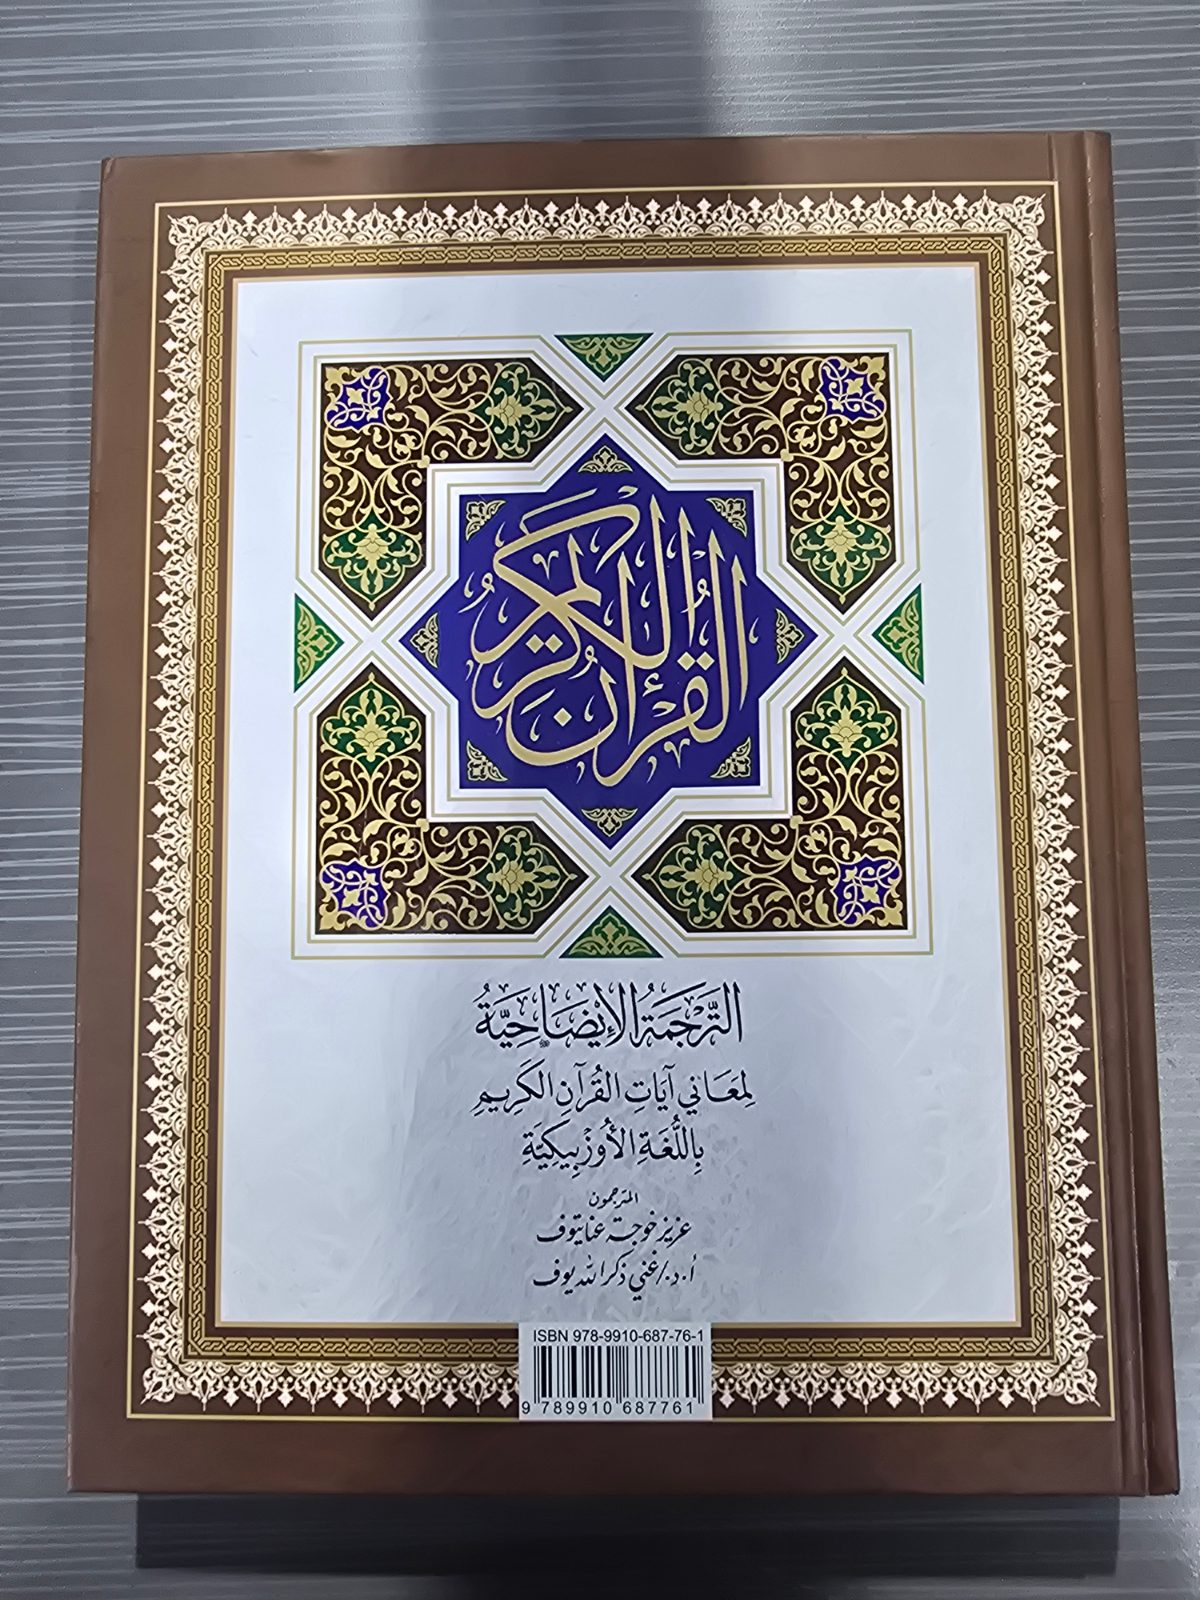 القُرآن الكريم
التَّرْجَمَةُ الإِيضَاحِيَّةُ
لِمَعَانِي آيَاتِ القُرْآنِ الكَرِيمِ
بِاللُّغَةِ الأُوزْبِيكِيَّةِ
المترجمون
عزيز خوجة عنايتوف
أ.د./غني ذكر الله يوف
ISBN 978-9910-687-76-1
9 789910 687761